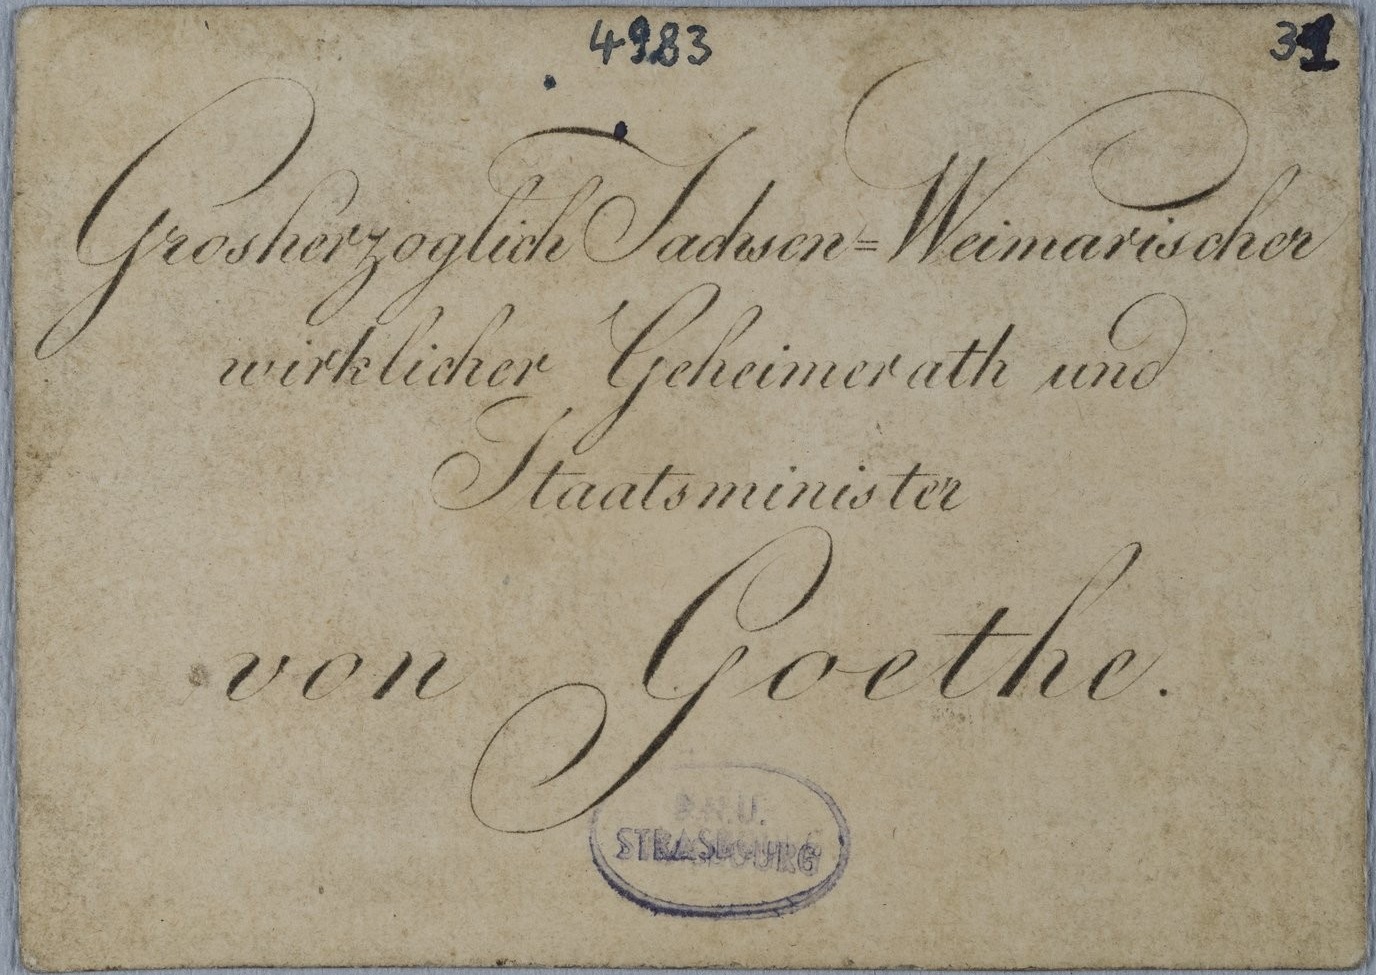 4983
31
Grosherzoglich Sachsen=Weimarischer
wirklicher Geheimerath und
Staatsminister
von Goethe.
B.N.U.
STRASBOURG